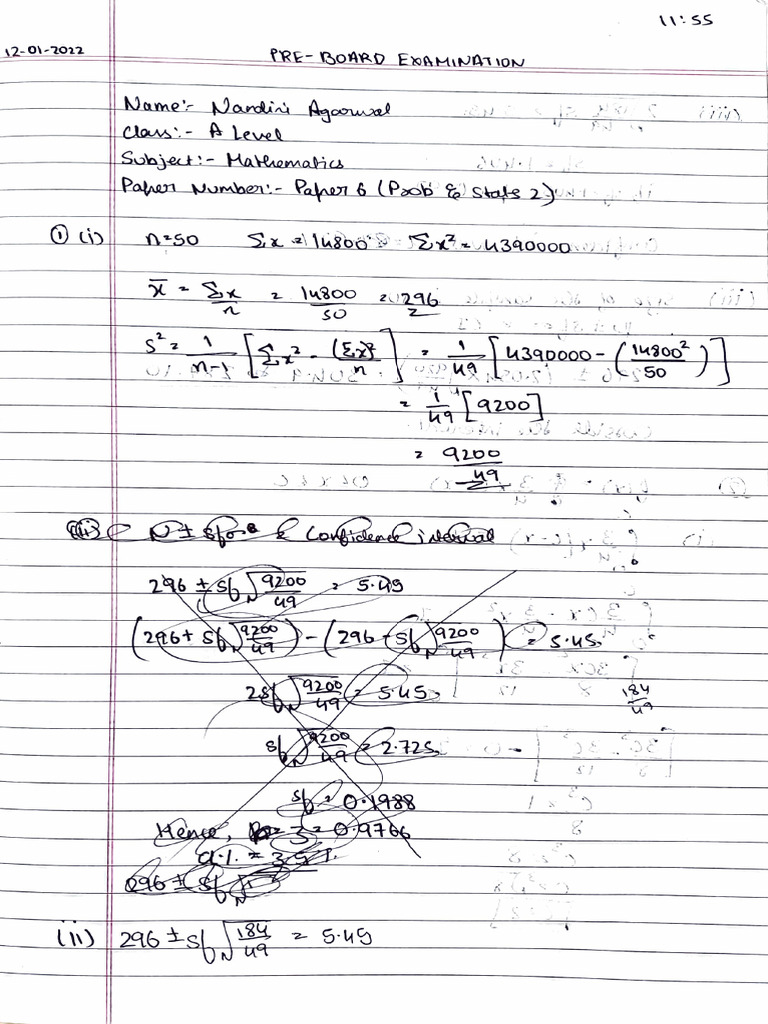 11:55
12-01-2022 PRE-BOARD EXAMINATION
Name:- Nandini Agarwal
Class:- A Level
Subject:- Mathematics
Paper Number:- Paper 6 (Prob & Stats 2)
① (i) n=50 Σx = 14800 Σx² = 4390000
x̄ = Σx/n = 14800/50 = 296
S² = 1/(n-1) [Σx² - (Σx)²/n] = 1/49 [4390000 - (14800²/50)]
= 1/49 [9200]
= 9200/49
Confidence interval
296 ± sf √(9200/49) = 5.45
(296 + sf √(9200/49)) - (296 - sf √(9200/49)) = 5.45
2sf √(9200/49) = 5.45
184/49
sf √(9200/49) = 2.725
sf = 0.1988
Hence, = 0.9766
296 ± sf
(ii) 296 ± sf √(184/49) = 5.45